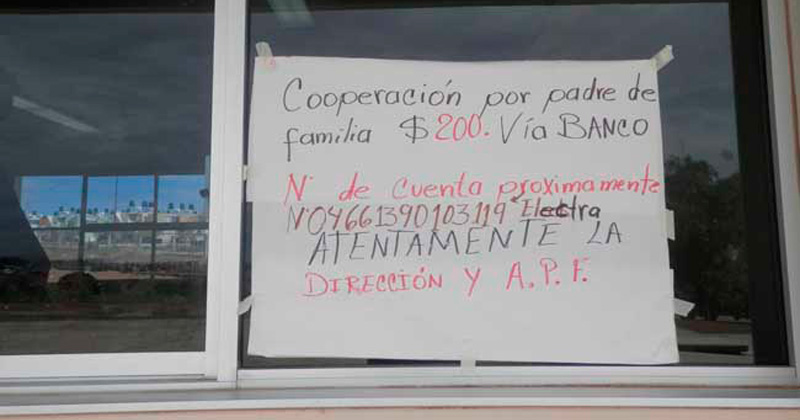 Cooperación por padre de
familia $200. Vía BANCO
N° de cuenta proximamente
N°04661390103119 Electra
ATENTAMENTE LA
DIRECCIÓN Y A.P.F.